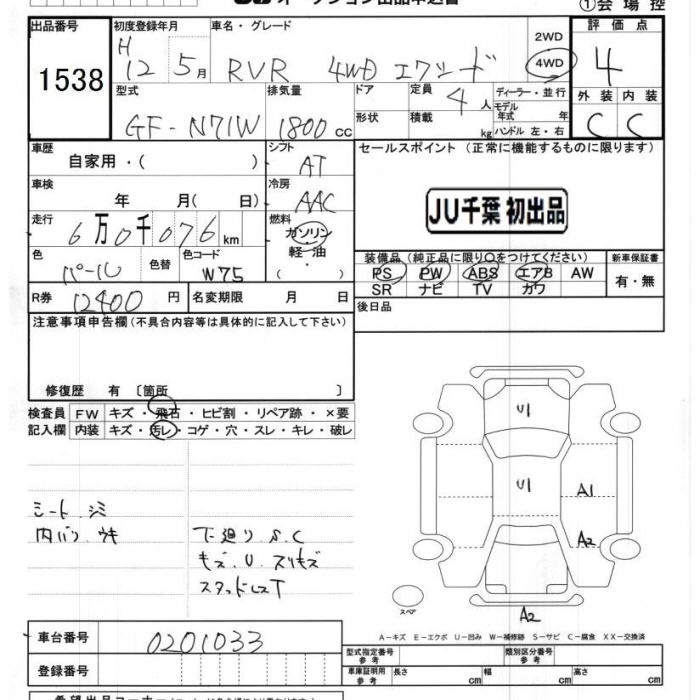 オークション出品申込書
①会場控
出品番号
1538
初度登録年月
H 12 5月
車名・グレード
RVR 4WD エクシード
2WD
4WD
評価点
4
外装 内装
C C
型式
GF-N71W
排気量
1800 cc
ドア
形状
定員
4 人
積載 kg
ディーラー・並行
モデル年式 年
ハンドル 左・右
車歴
自家用・( )
シフト
AT
車検
年 月( 日)
冷房
AAC
走行
6万0千076km
燃料
ガソリン
軽・油
( )
色
パール
色替
色コード
W75
R券
12400円
名変期限 月 日
セールスポイント(正常に機能するものに限ります)
JU千葉 初出品
装備品(純正品に限り○をつけてください)
PS PW ABS エアB AW
SR ナビ TV カワ
新車保証書
有・無
後日品
注意事項申告欄(不具合内容等は具体的に記入して下さい)
修復歴 有 〔箇所 〕
検査員記入欄
FW キズ・飛石・ヒビ割・リペア跡・×要
内装 キズ・汚レ・コゲ・穴・スレ・キレ・破レ
シート シミ
内バリ ウキ
下廻り S.C
キズ.U.スリキズ
スタッドレスT
U1
U1
A1
A2
A2
スペア
A-キズ E-エクボ U-凹み W-補修跡 S-サビ C-腐食 XX-交換済
車台番号
0201033
登録番号
型式指定番号 参考
類別区分番号 参考
車庫証明用 参考
長さ cm
幅 cm
高さ cm
希望出品コーナー